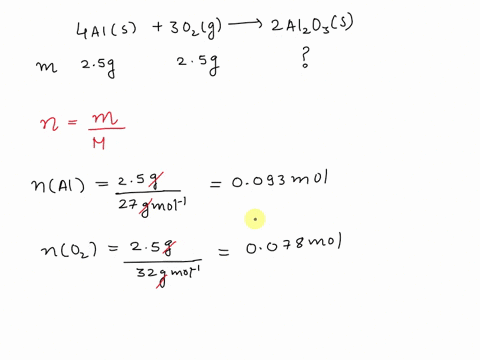 4Al(s) + 3O₂(g) ⟶ 2Al₂O₃(s)
m 2.5g 2.5g ?
n = m/M
n(Al) = 2.5g/27gmol⁻¹ = 0.093mol
n(O₂) = 2.5g/32gmol⁻¹ = 0.078mol